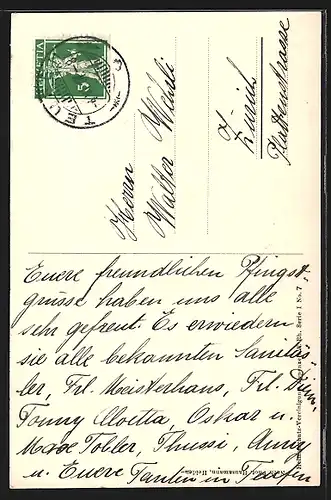 HELVETIA
5
TEU
Herrn
Walter Wehrli
Zürich
Plattenstrasse
Euere freundlichen Pfingst-
grüsse haben uns alle
sehr gefreut. Es erwiedern
sie alle bekannten Sanitäs-
ler, Frl. Meisterhans, Frl.
Tonny Cloetta, Oskar u.
Max Tobler, Thussi, Anny
u. Euere Tanten in Teufen
Serie I No. 7